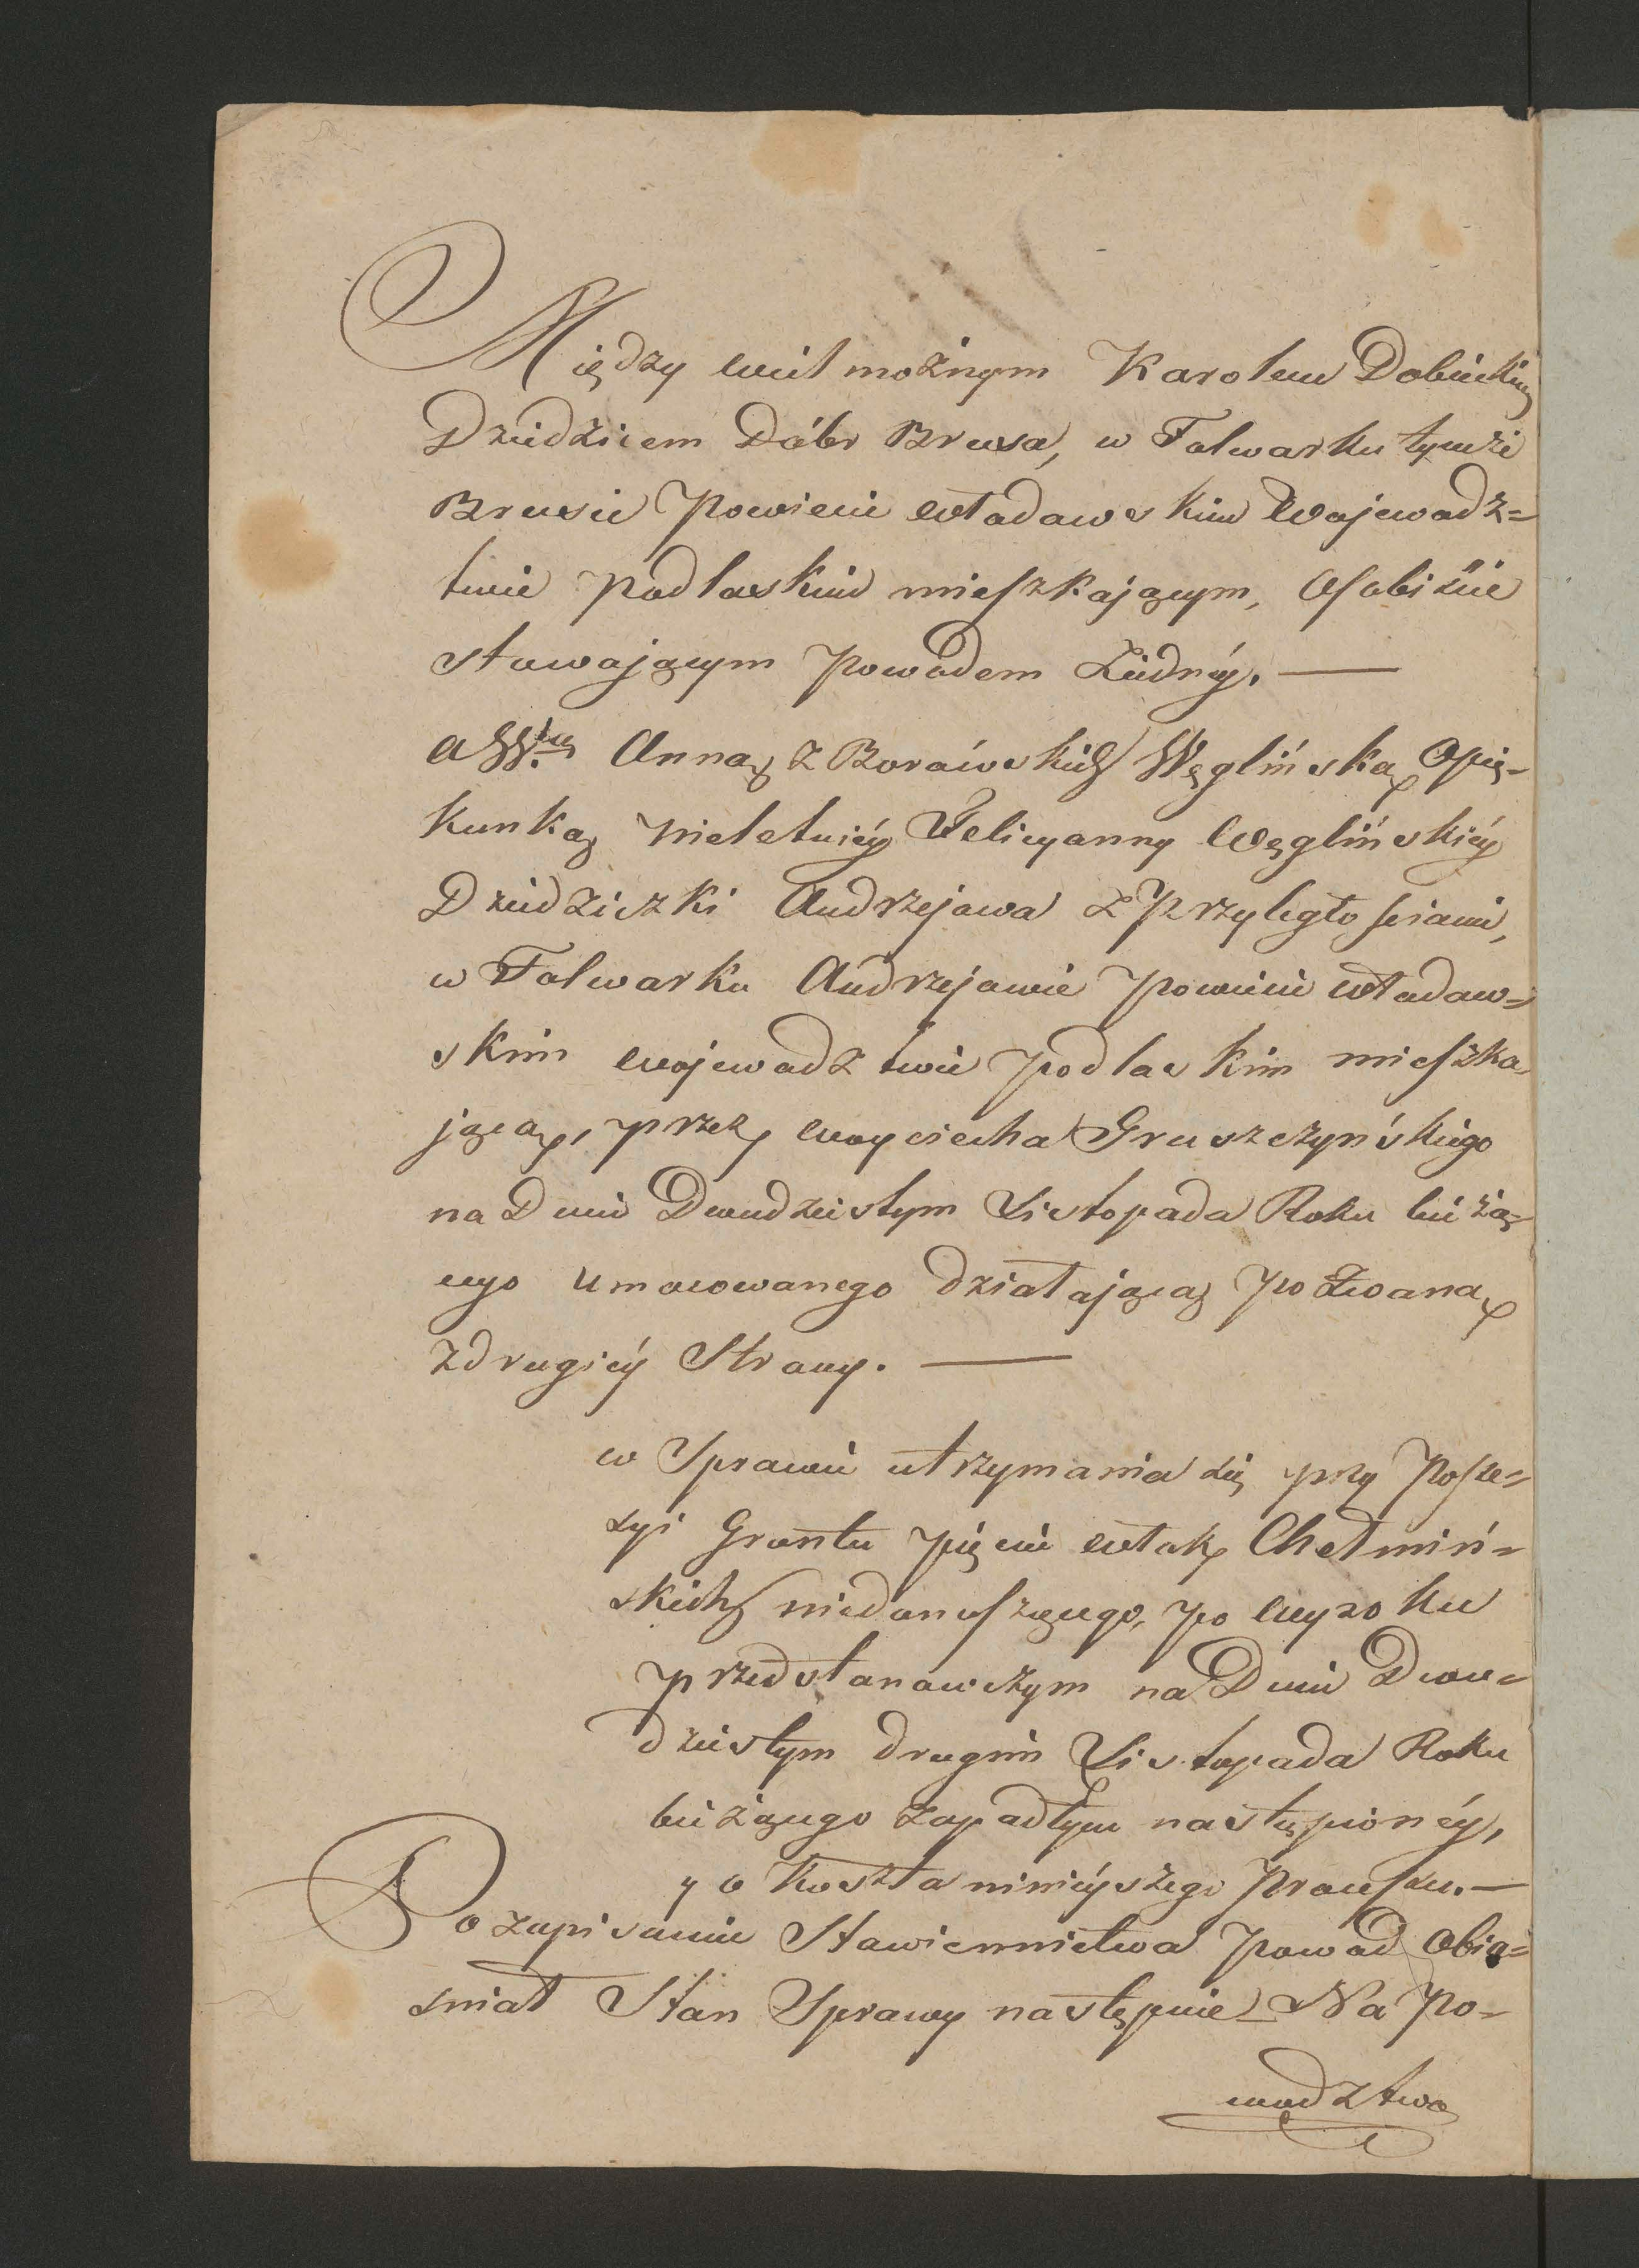 Między Wielmożnym Karolem Dobieckim
Dziedzicem Dóbr Brusa, w Folwarku tymże
Brusie Powiecie Włodawskim Wojewodz=
twie Podlaskim mieszkającym, Osobiście
stawającym Powodem Ziedney. —
a W. Anną z Borowskich Węglińską Opie=
kunką Nieletniéy Felicyanny Węglińskiéy
Dziedziczki Andrzejowa z Przyległościami,
w Folwarku Andrzejowie Powiecie Włodaw=
skim Wojewodztwie Podlaskim mieszka=
jącą, przez Woyciecha Gruszczyńskiego
na Dniu Dwudziestym Listopada Roku bieżą=
cego umocowanego działającą Pozwaną
z drugiéy Strony. —
w Sprawie utrzymania się przy Posse=
syi Gruntu pięciu Włók Chełmiń=
skich niedonoszącego, po Wyroku
przedstanowczym na Dniu Dwu=
dziestym drugim Listopada Roku
bieżącego zapadłym nastąpionéy,
y o Koszta ninieyszego Processu. —
Po zapisaniu Stawiennictwa Powod Obia=
śniał Stan Sprawy następnie Na Po=
wodztwo